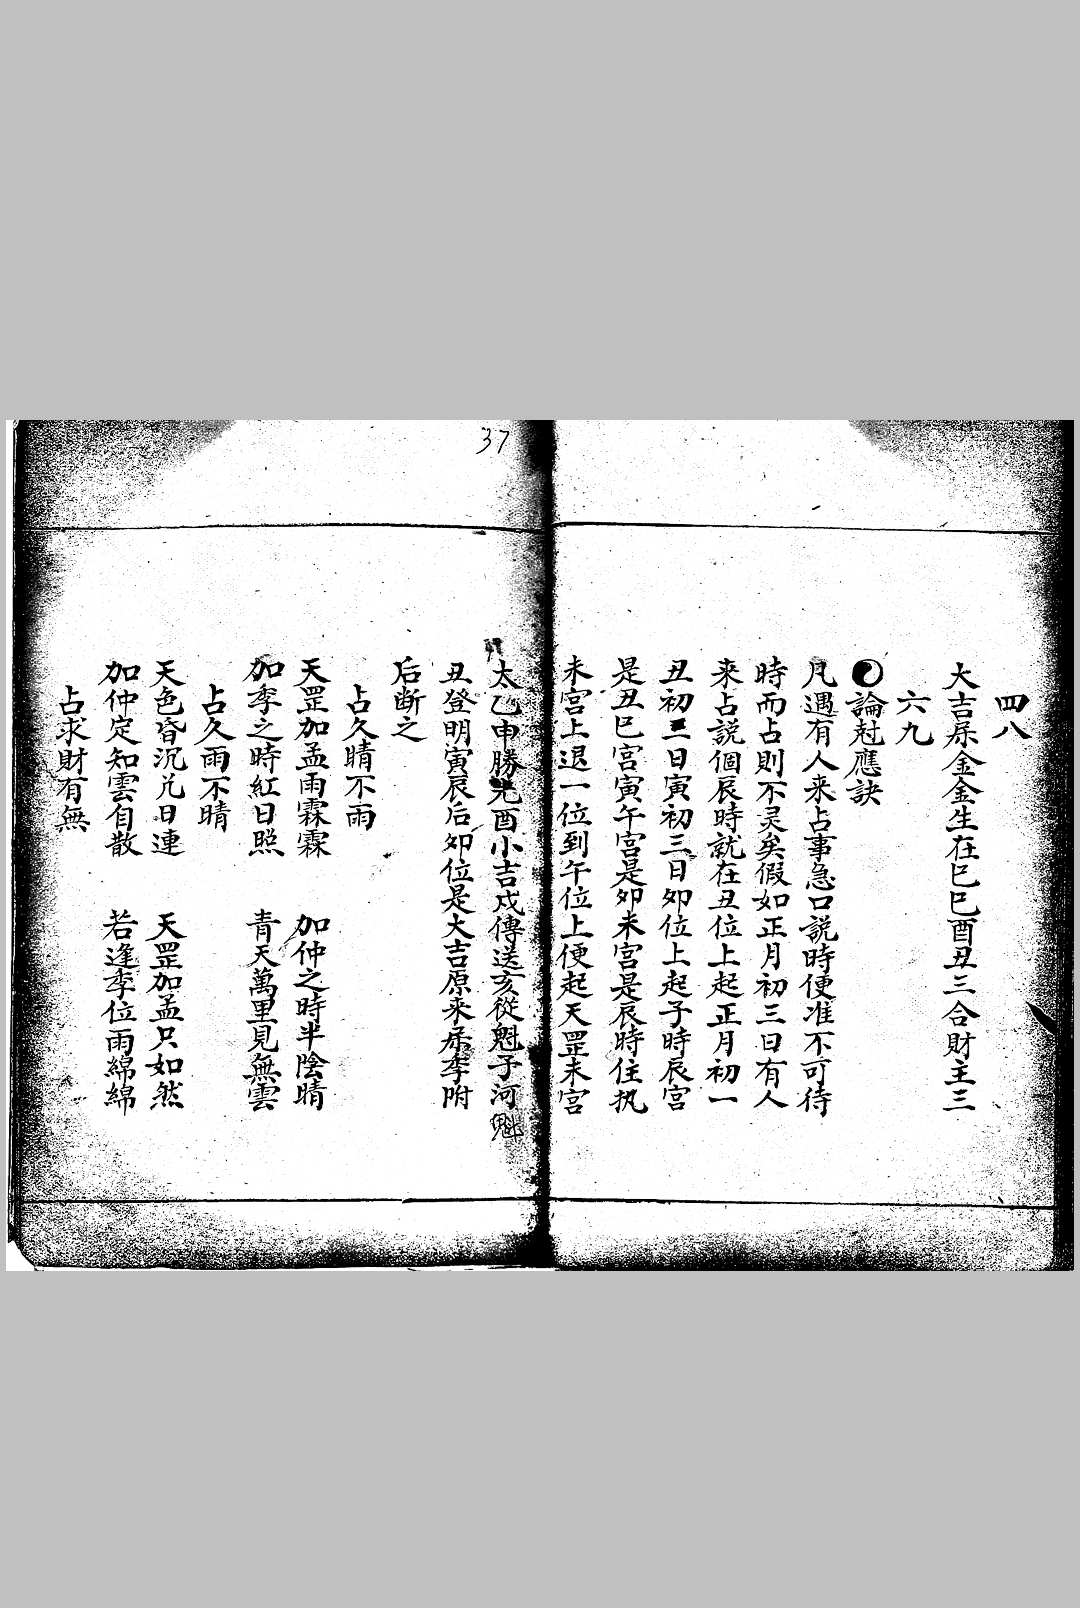 四八
大吉屬金金生在巳巳酉丑三合財主三
六九
論尅應訣
凡遇有人来占事急口説時便准不可待
時而占則不灵矣假如正月初三日有人
来占説個辰時就在丑位上起正月初一
丑初二日寅初三日夘位上起子時辰宫
是丑巳宫寅午宫是夘未宫是辰時住执
未宫上退一位到午位上便起天罡未宫
太乙申勝光酉小吉戍傳送亥從魁子河魁
丑登明寅辰后夘位是大吉原来屬季附
后断之
占久晴不雨
天罡加孟雨霖霖 加仲之時半陰晴
加季之時紅日照 青天萬里見無雲
占久雨不晴
天色昏沉兀日連 天罡加孟只如然
加仲定知雲自散 若逢季位雨綿綿
占求財有無
37